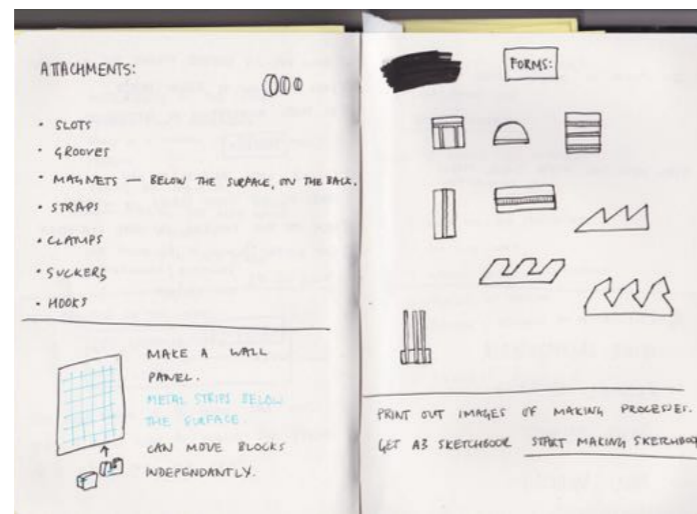 ATTACHMENTS:
• SLOTS
• GROOVES
• MAGNETS — BELOW THE SURFACE, ON THE BACK.
• STRAPS
• CLAMPS
• SUCKERS
• HOOKS
MAKE A WALL
PANEL.
METAL STRIPS BELOW
THE SURFACE.
CAN MOVE BLOCKS
INDEPENDANTLY.
FORMS:
PRINT OUT IMAGES OF MAKING PROCESSES.
GET A3 SKETCHBOOK START MAKING SKETCHBOOK